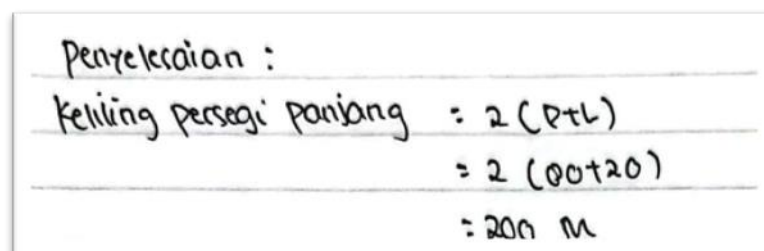 Penyelesaian :
Keliling persegi panjang = 2 (P+L)
= 2 (80+20)
= 200 M